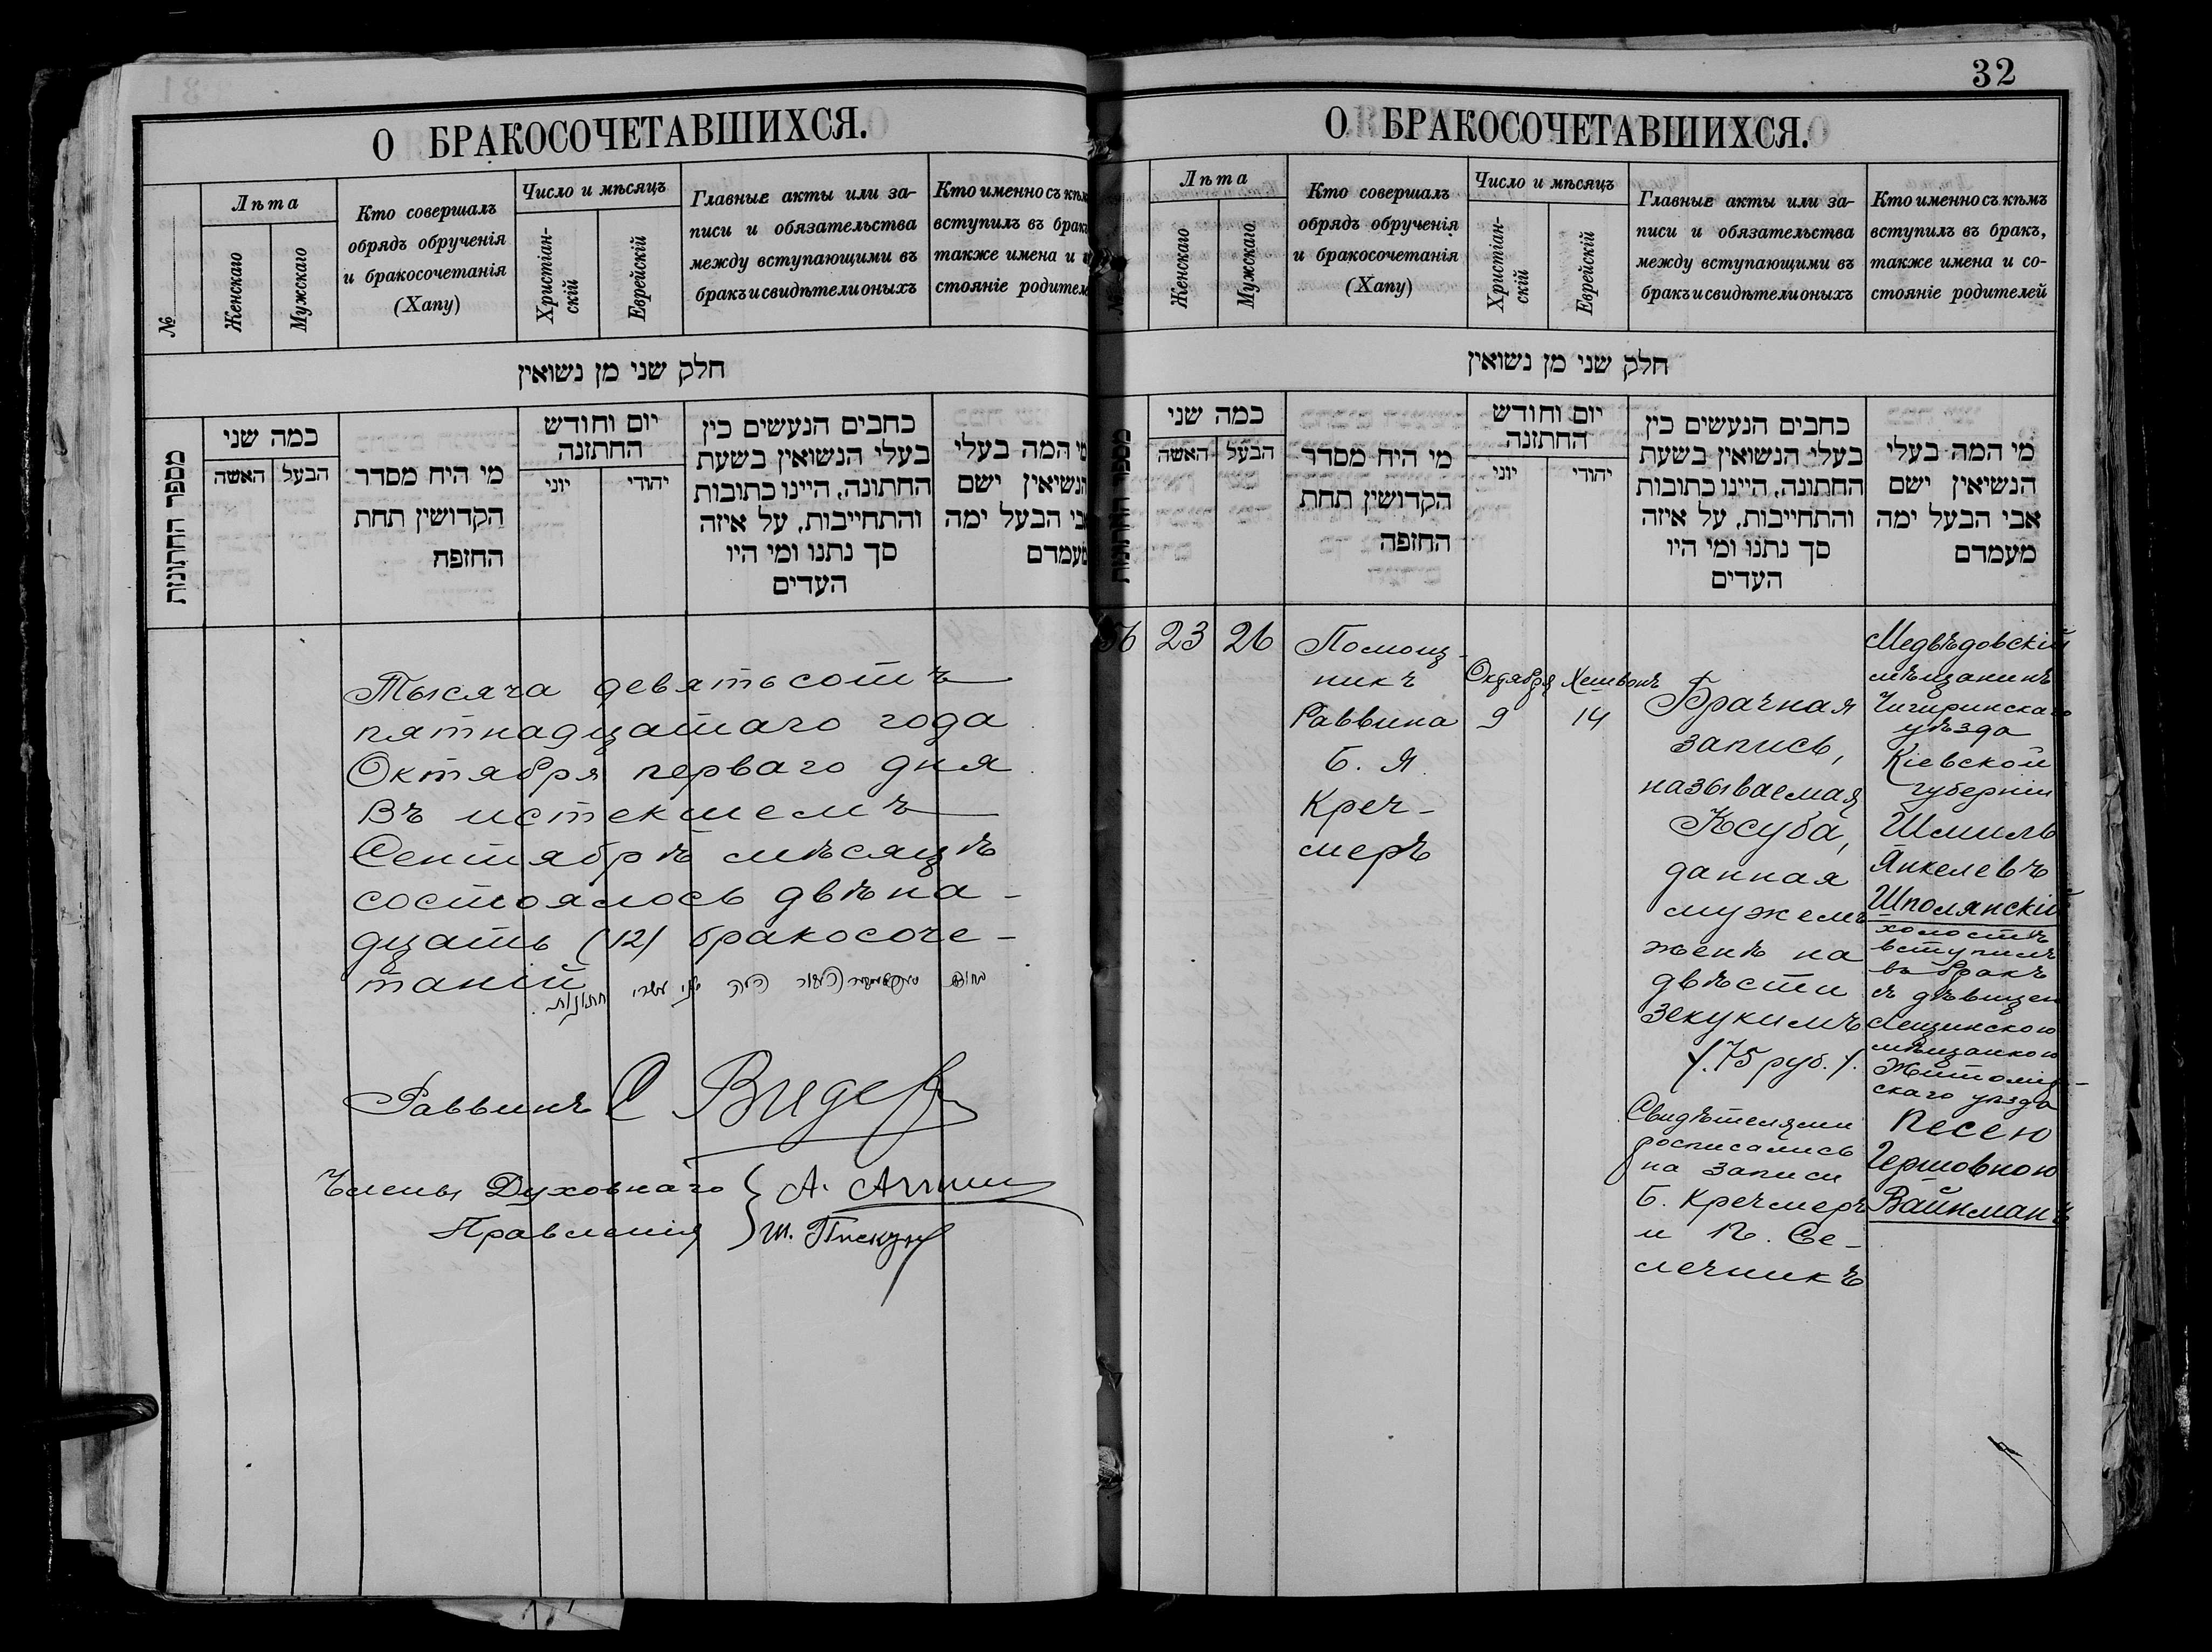 О БРАКОСОЧЕТАВШИХСЯ.
№
Лѣта
Женскаго
Мужскаго
Кто совершалъ
обрядъ обрученія
и бракосочетанія
(Хапу)
Число и мѣсяцъ
Христіан-
скій
Еврейскій
Главные акты или за-
писи и обязательства
между вступающими въ
бракъ и свидѣтели оныхъ
Кто именно съ кѣм
вступилъ въ брак
также имена и
стояніе родител
חלק שני מן נשואין
מספר החתונות
כמה שני
האשה
הבעל
מי היח מסדר
הקדושין תחת
החזפה
יום וחודש
החתזנה
יוני
יהודי
כחבים הנעשים כין
בעלי הנשואין בשעת
החתונה, היינו כתובות
והתחייבות, על איזה
סך נתנו ומי היו
העדים
מי המה בעלי
הנשיאין ישם
אבי הבעל ימה
מעמדם
Тысяча девятьсотъ
пятнадцатаго года
Октября перваго дня
Въ истекшемъ
Сентябрѣ мѣсяцѣ
состоялось двѣна-
дцать (12) бракосоче-
таній
Раввинъ
Члены Духовнаго
Правленія
Ш. Пискун
32
О БРАКОСОЧЕТАВШИХСЯ.
№
Лѣта
Женскаго
Мужскаго
Кто совершалъ
обрядъ обрученія
и бракосочетанія
(Хапу)
Число и мѣсяцъ
Христіан-
скій
Еврейскій
Главные акты или за-
писи и обязательства
между вступающими въ
бракъ и свидѣтели оныхъ
Кто именно съ кѣмъ
вступилъ въ бракъ,
также имена и со-
стояніе родителей
חלק שני מן נשואין
מספר החתונות
כמה שני
האשה
הבעל
מי היח מסדר
הקדושין תחת
החזפה
יום וחודש
החתזנה
יוני
יהודי
כחבים הנעשים כין
בעלי הנשואין בשעת
החתונה, היינו כתובות
והתחייבות, על איזה
סך נתנו ומי היו
העדים
מי המה בעלי
הנשיאין ישם
אבי הבעל ימה
מעמדם
56
23
26
Помощ-
никъ
Раввина
Б. Я.
Креч-
меръ
Октября
9
Хешвонъ
14
Брачная
запись,
называемая
Ксуба,
данная
мужемъ
женѣ на
двѣсти
зекукимъ
/.75 руб./.
Свидѣтелями
росписались
на записи
Б. Кречмеръ
и П. Се-
лечникъ
Медвѣдовскій
мѣщанинъ
Чигиринскаго
уѣзда
Кіевской
губерніи
Шмиль
Янкелевъ
Шполянскій
холостъ
вступилъ
въ бракъ
съ дѣвицей
Лещинскою
мѣщанкою
Житомір-
скаго уѣзда
Песею
Гершовною
Вайнманъ